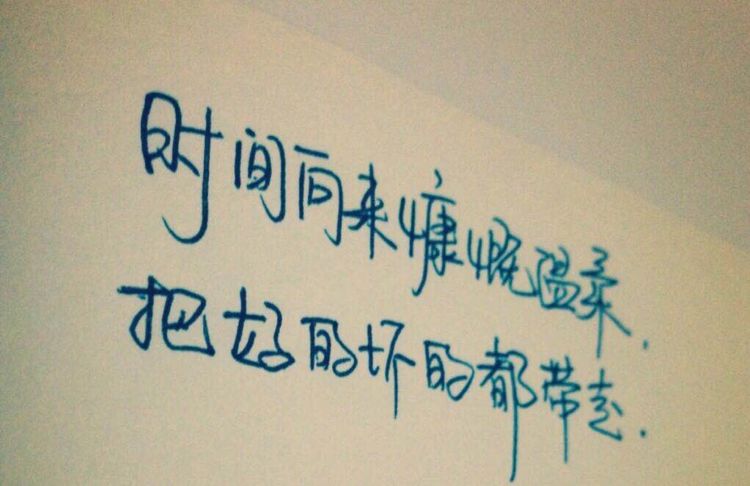 时间向来慷慨温柔.
把好的坏的都带走.